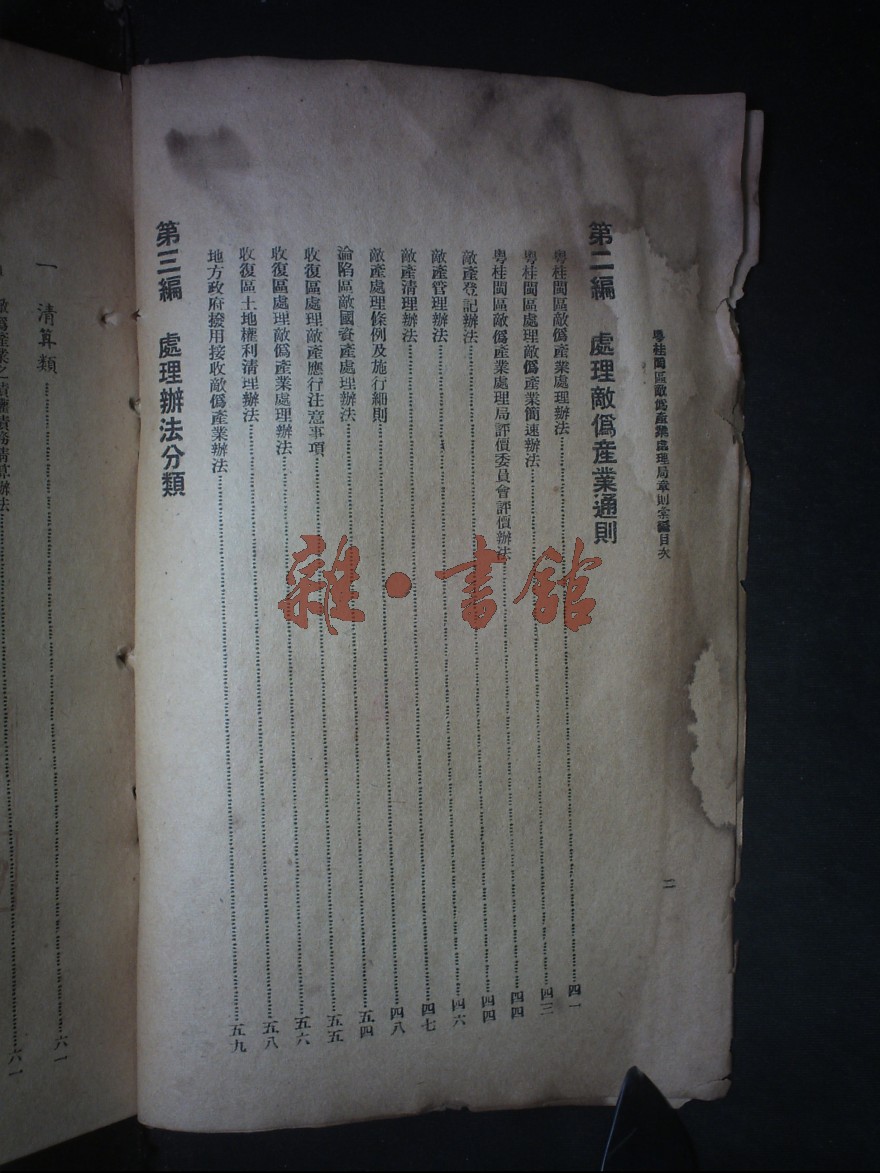 粵桂閩區敵僞產業處理局章則彙編目次 二
第二編 處理敵僞產業通則
粵桂閩區敵僞產業處理辦法……四一
粵桂閩區處理敵僞產業簡速辦法……四三
粵桂閩區敵僞產業處理局評價委員會評價辦法……四四
敵產登記辦法……四四
敵產管理辦法……四六
敵產清理辦法……四七
敵產處理條例及施行細則……四八
淪陷區敵國資產處理辦法……五四
收復區處理敵產應行注意事項……五五
收復區處理敵僞產業處理辦法……五六
收復區土地權利清理辦法……五八
地方政府撥用接收敵僞產業辦法……五九
第三編 處理辦法分類
一 清算類……六一
產業之債權債務清算辦法……六一
雜·書館